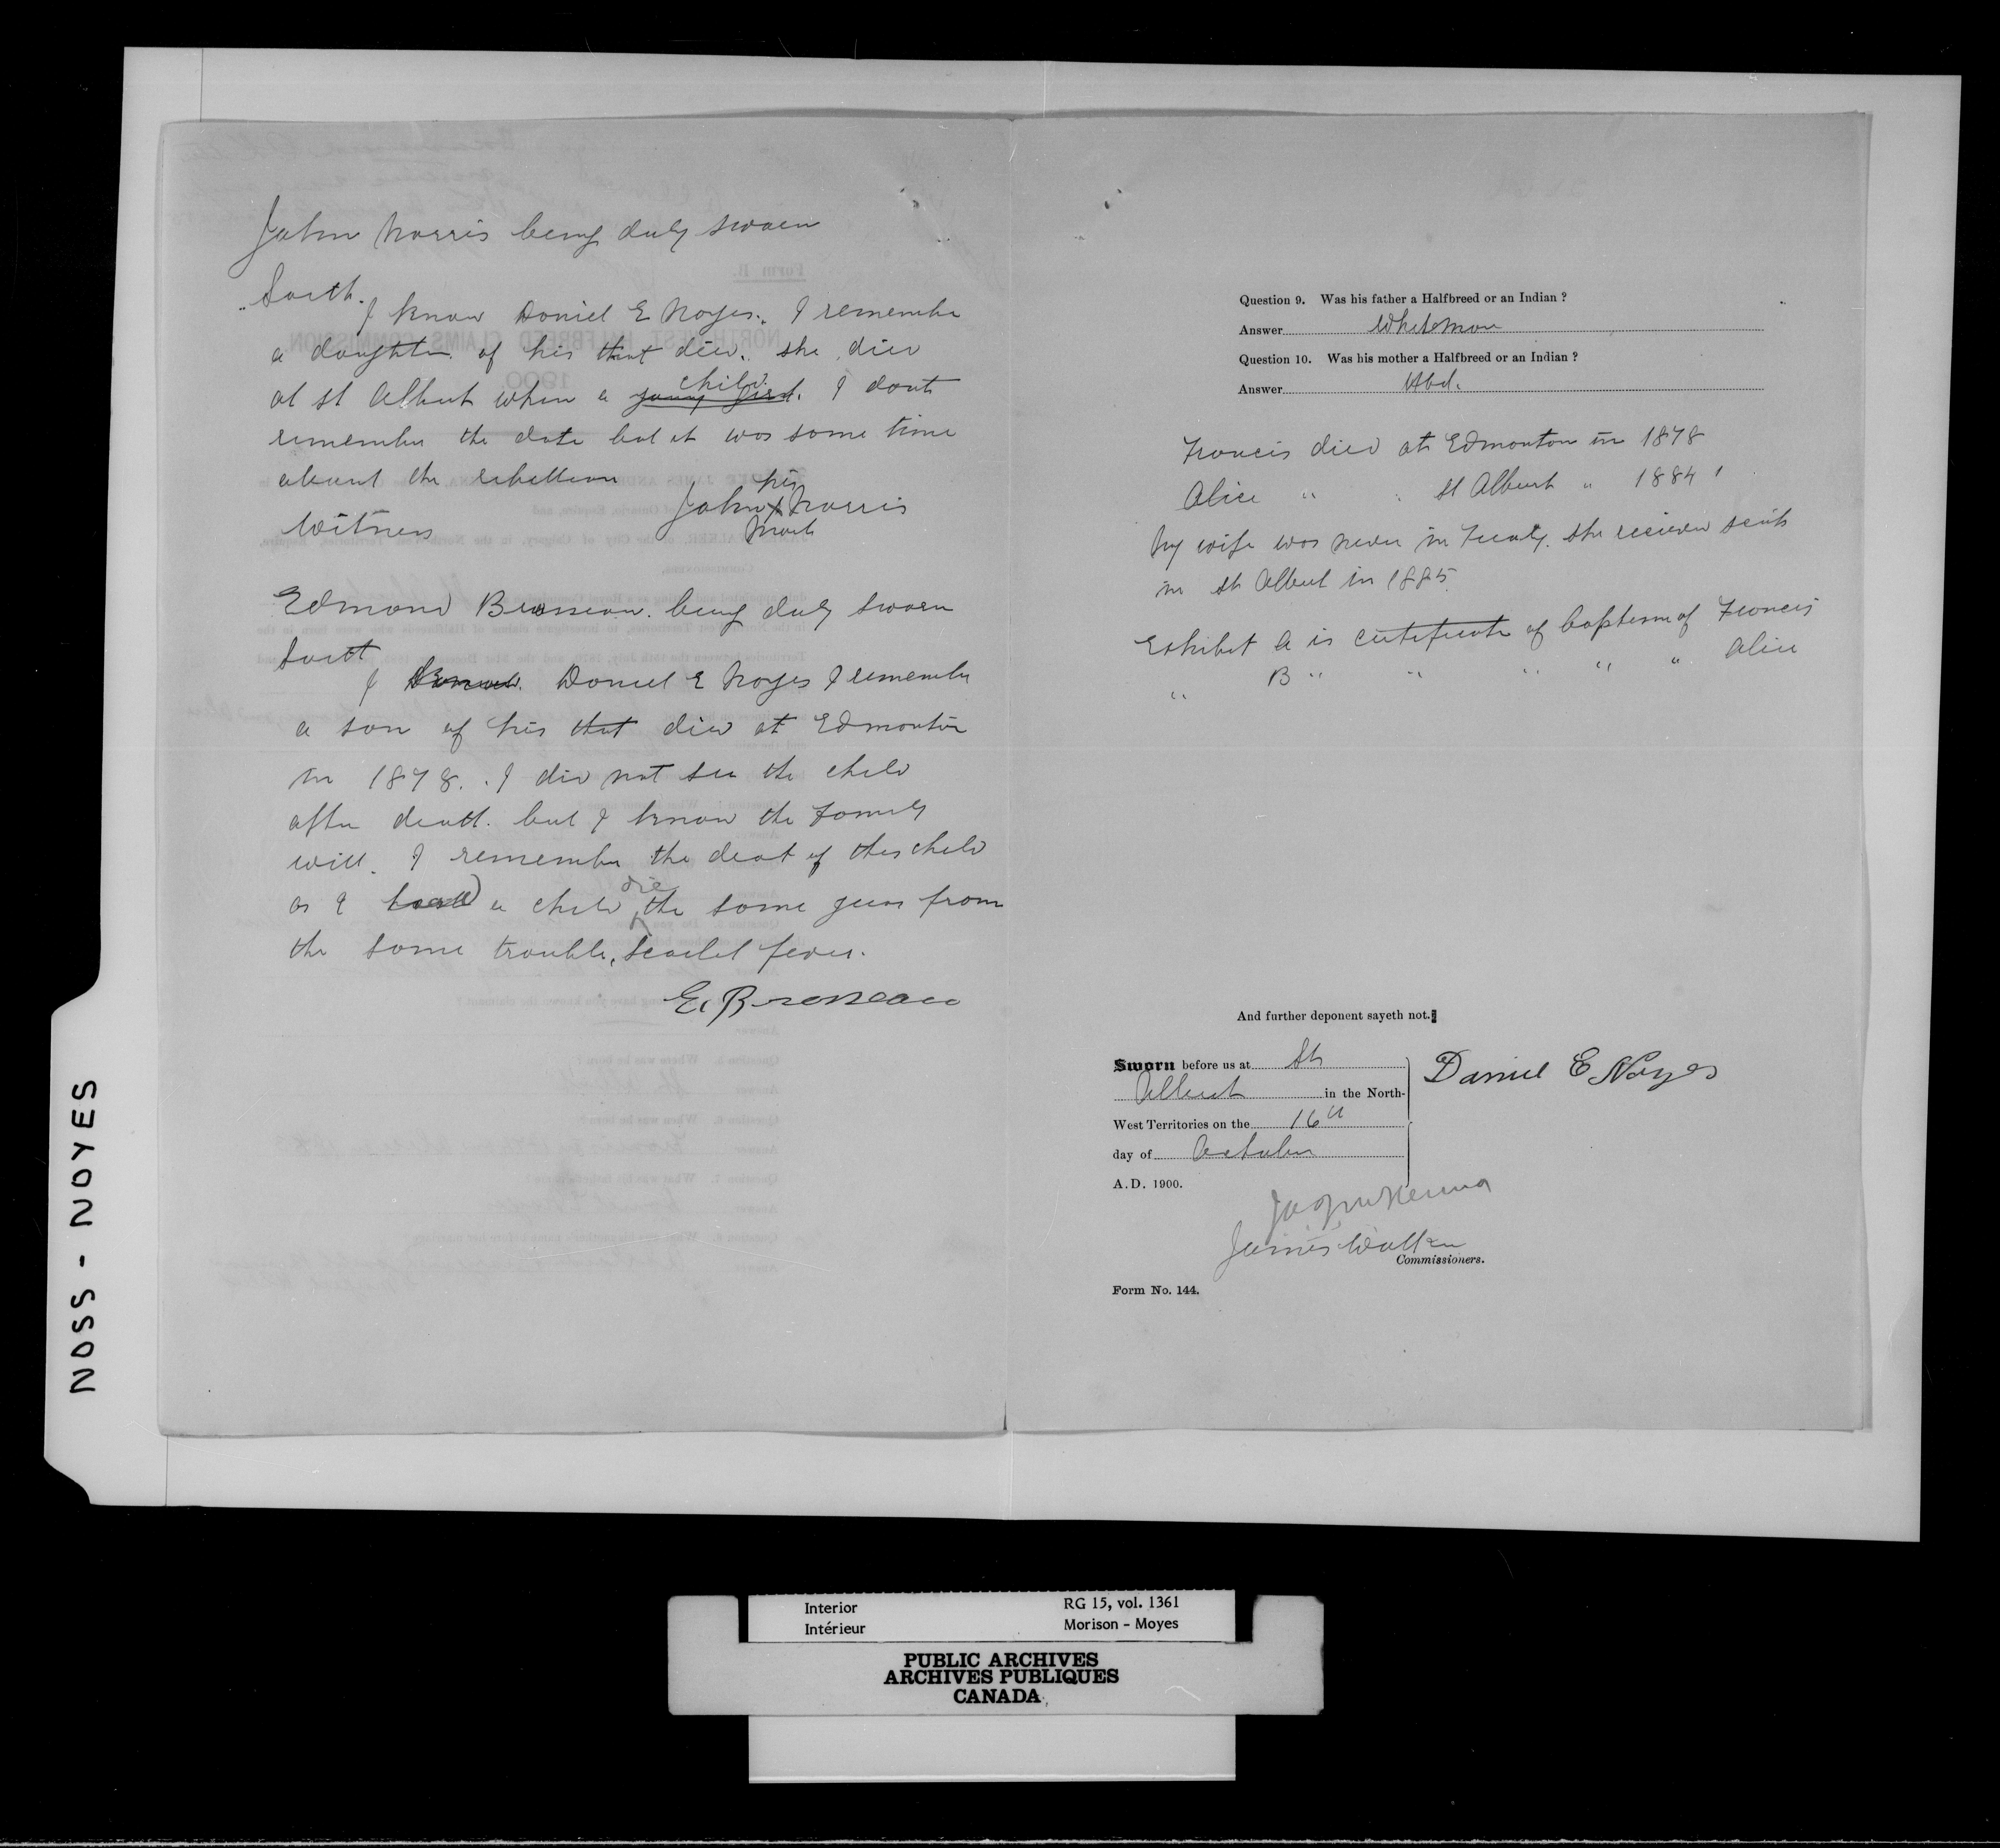 John Norris being duly sworn
Saith.
I know Daniel E Noyes. I remember
a daughter of his that died. she died
at St Albert when a young girl. child. I dont
remember the date but it was some time
about the rebellion
his
John X Norris
mark
Witness
Edmond Brosseau being duly sworn
Saith
I Daniel E Noyes I remember
a son of his that died at Edmonton
in 1878. I did not see the child
after death. but I know the Family
well. I remember the deat of this child
as I had a child die the same year from
the same trouble, scarlet fever.
E. Brosseau
Question 9. Was his father a Halfbreed or an Indian ?
Answer Whiteman
Question 10. Was his mother a Halfbreed or an Indian ?
Answer Hbd.
Francis died at Edmonton in 1878
Alice " " St Albert " 1884
My wife was never in Treaty. she recieved scrip
in St Albert in 1885.
Exhibit A is certificate of baptism of Francis
" B " " " " " Alice
And further deponent sayeth not.
Sworn before us at St
Albert in the North-
West Territories on the 16th
day of October
A.D. 1900.
Daniel E Noyes
James Walker
Commissioners.
Form No. 144.
NOSS - NOYES
Interior RG 15, vol. 1361
Intérieur Morison - Moyes
PUBLIC ARCHIVES
ARCHIVES PUBLIQUES
CANADA